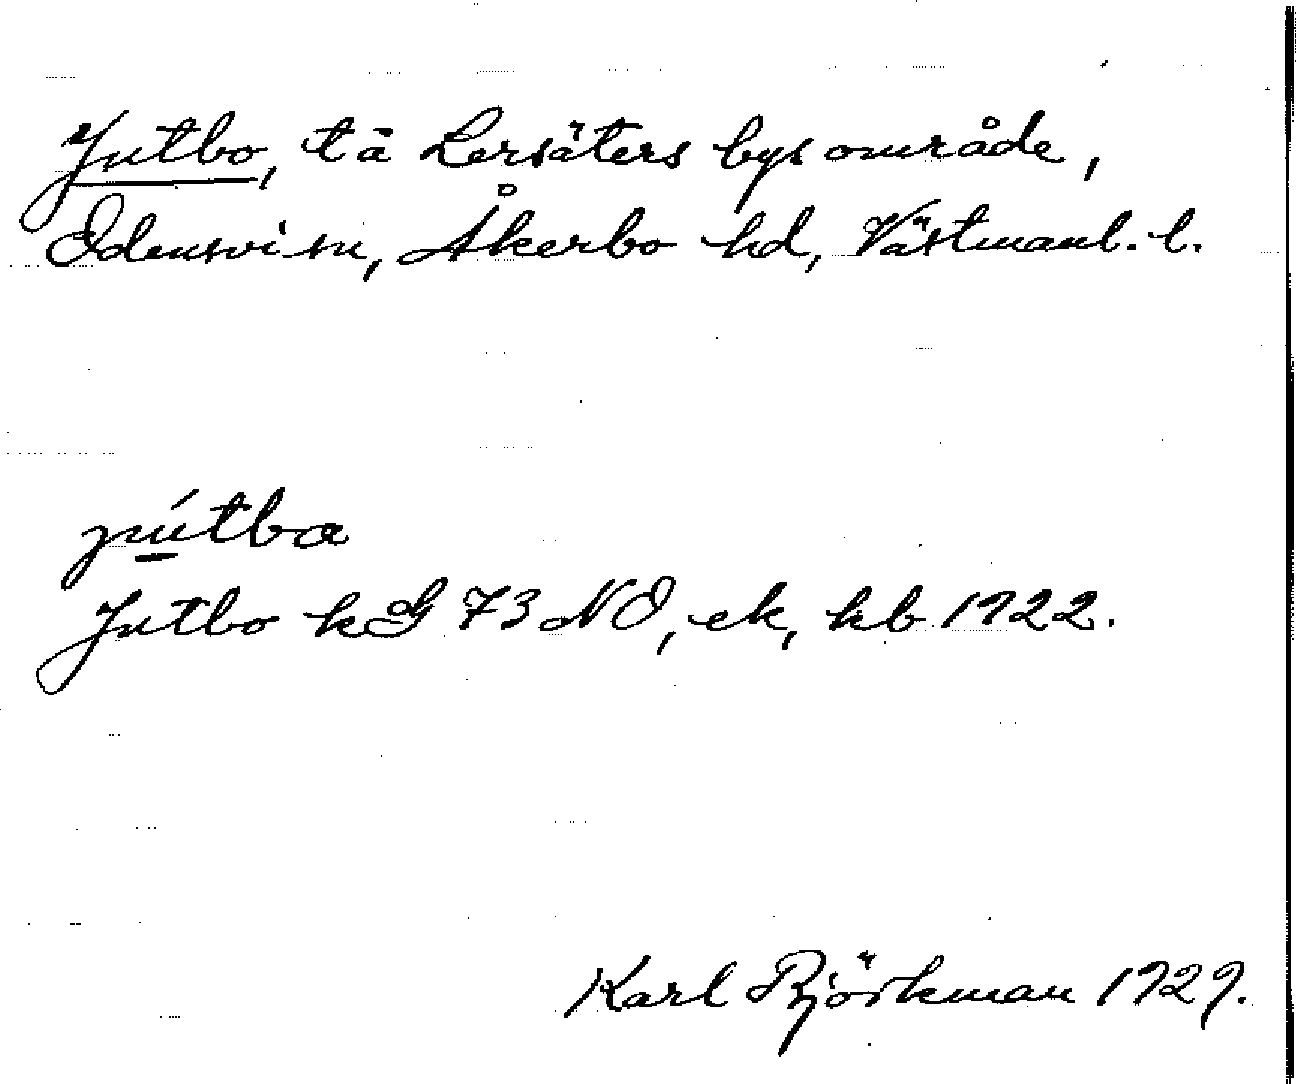 Jutbo, tä Lersäters bys område,
Odensvi sn, Åkerbo hd, Västmanl. l.
jútba
Jutbo kG 73 NO, ek, kb 1922.
Karl Björkman 1929.